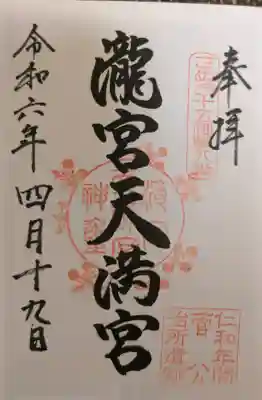 奉拝
瀧宮天満宮
令和六年四月十九日
仁和年間
菅公